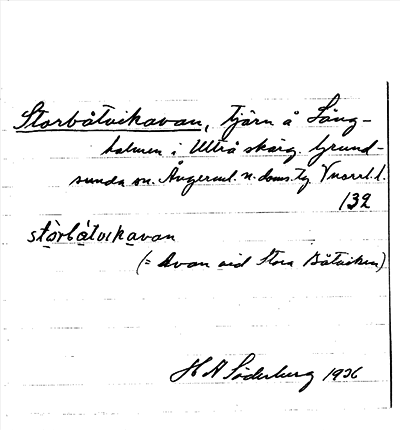 Storbåtvikavan, tjärn å Lång-
holmen i Ultrå skärg. Grund-
sunda sn. Ångerml. n. doms.tg. Vnorrl. l.
132
stòrbå̀tvikavan
(= Avan vid Stora Båtviken)
H A Söderberg 1936